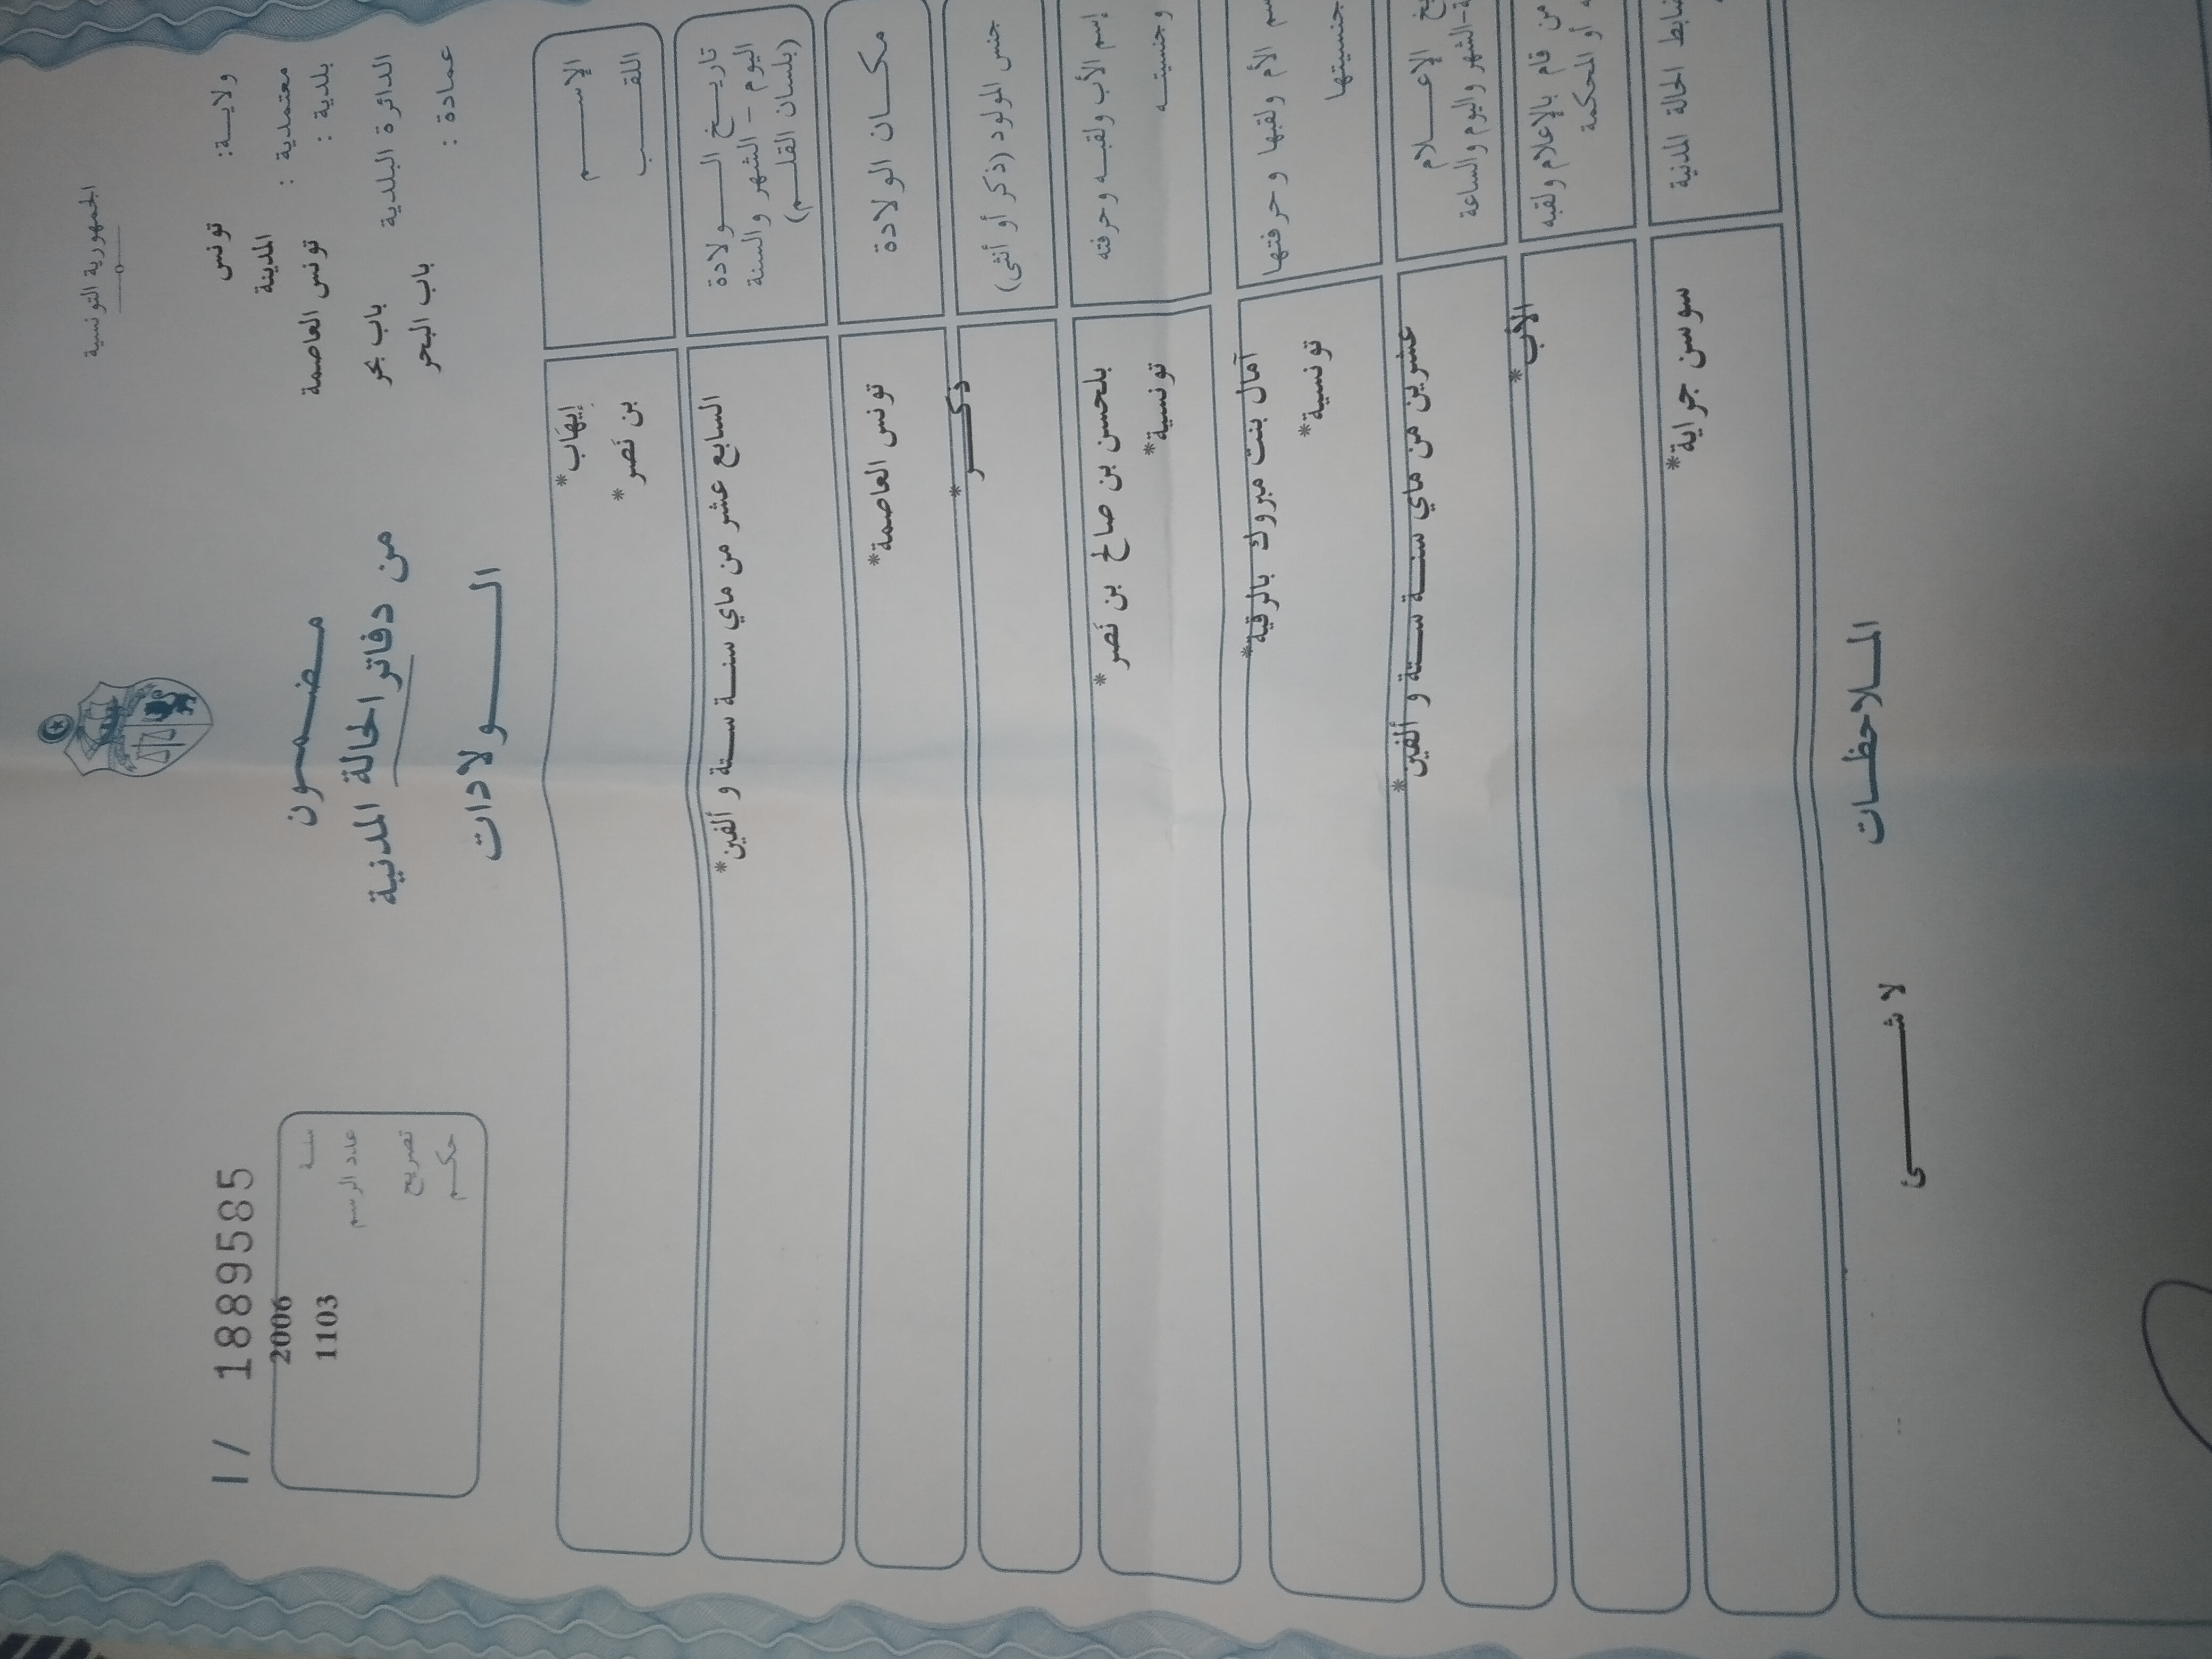 الجمهورية التونسية
ولاية: تونس
معتمدية : المدينة
بلدية : تونس العاصمة
الدائرة البلدية باب بحر
عمادة : باب البحر
مضمون
من دفاتر الحالة المدنية
الولادات
I/ 1889585
سنة 2006
عدد الرسم 1103
تصريح
حكم
الإسم *إيهَاب
اللقب *بن نَصر
تاريخ الولادة
اليوم - الشهر والسنة
(بلسان القلم)
*السابع عشر من ماي سنة ستة و ألفين
مكان الولادة *تونس العاصمة
جنس المولود (ذكر أو أنثى) *ذكر
إسم الأب ولقبه وحرفته *بلحسن بن صالح بن نَصر
وجنسيته *تونسية
الأم ولقبها وحرفتها *آمال بنت مبروك بالرقية
جنسيتها *تونسية
الإعلام
الشهر واليوم والساعة
*عشرين من ماي سنة ستة و ألفين
من قام بالإعلام ولقبه
أو المحكمة
*الأب
الحالة المدنية *سوسن جراية
الملاحظات
لا شئ